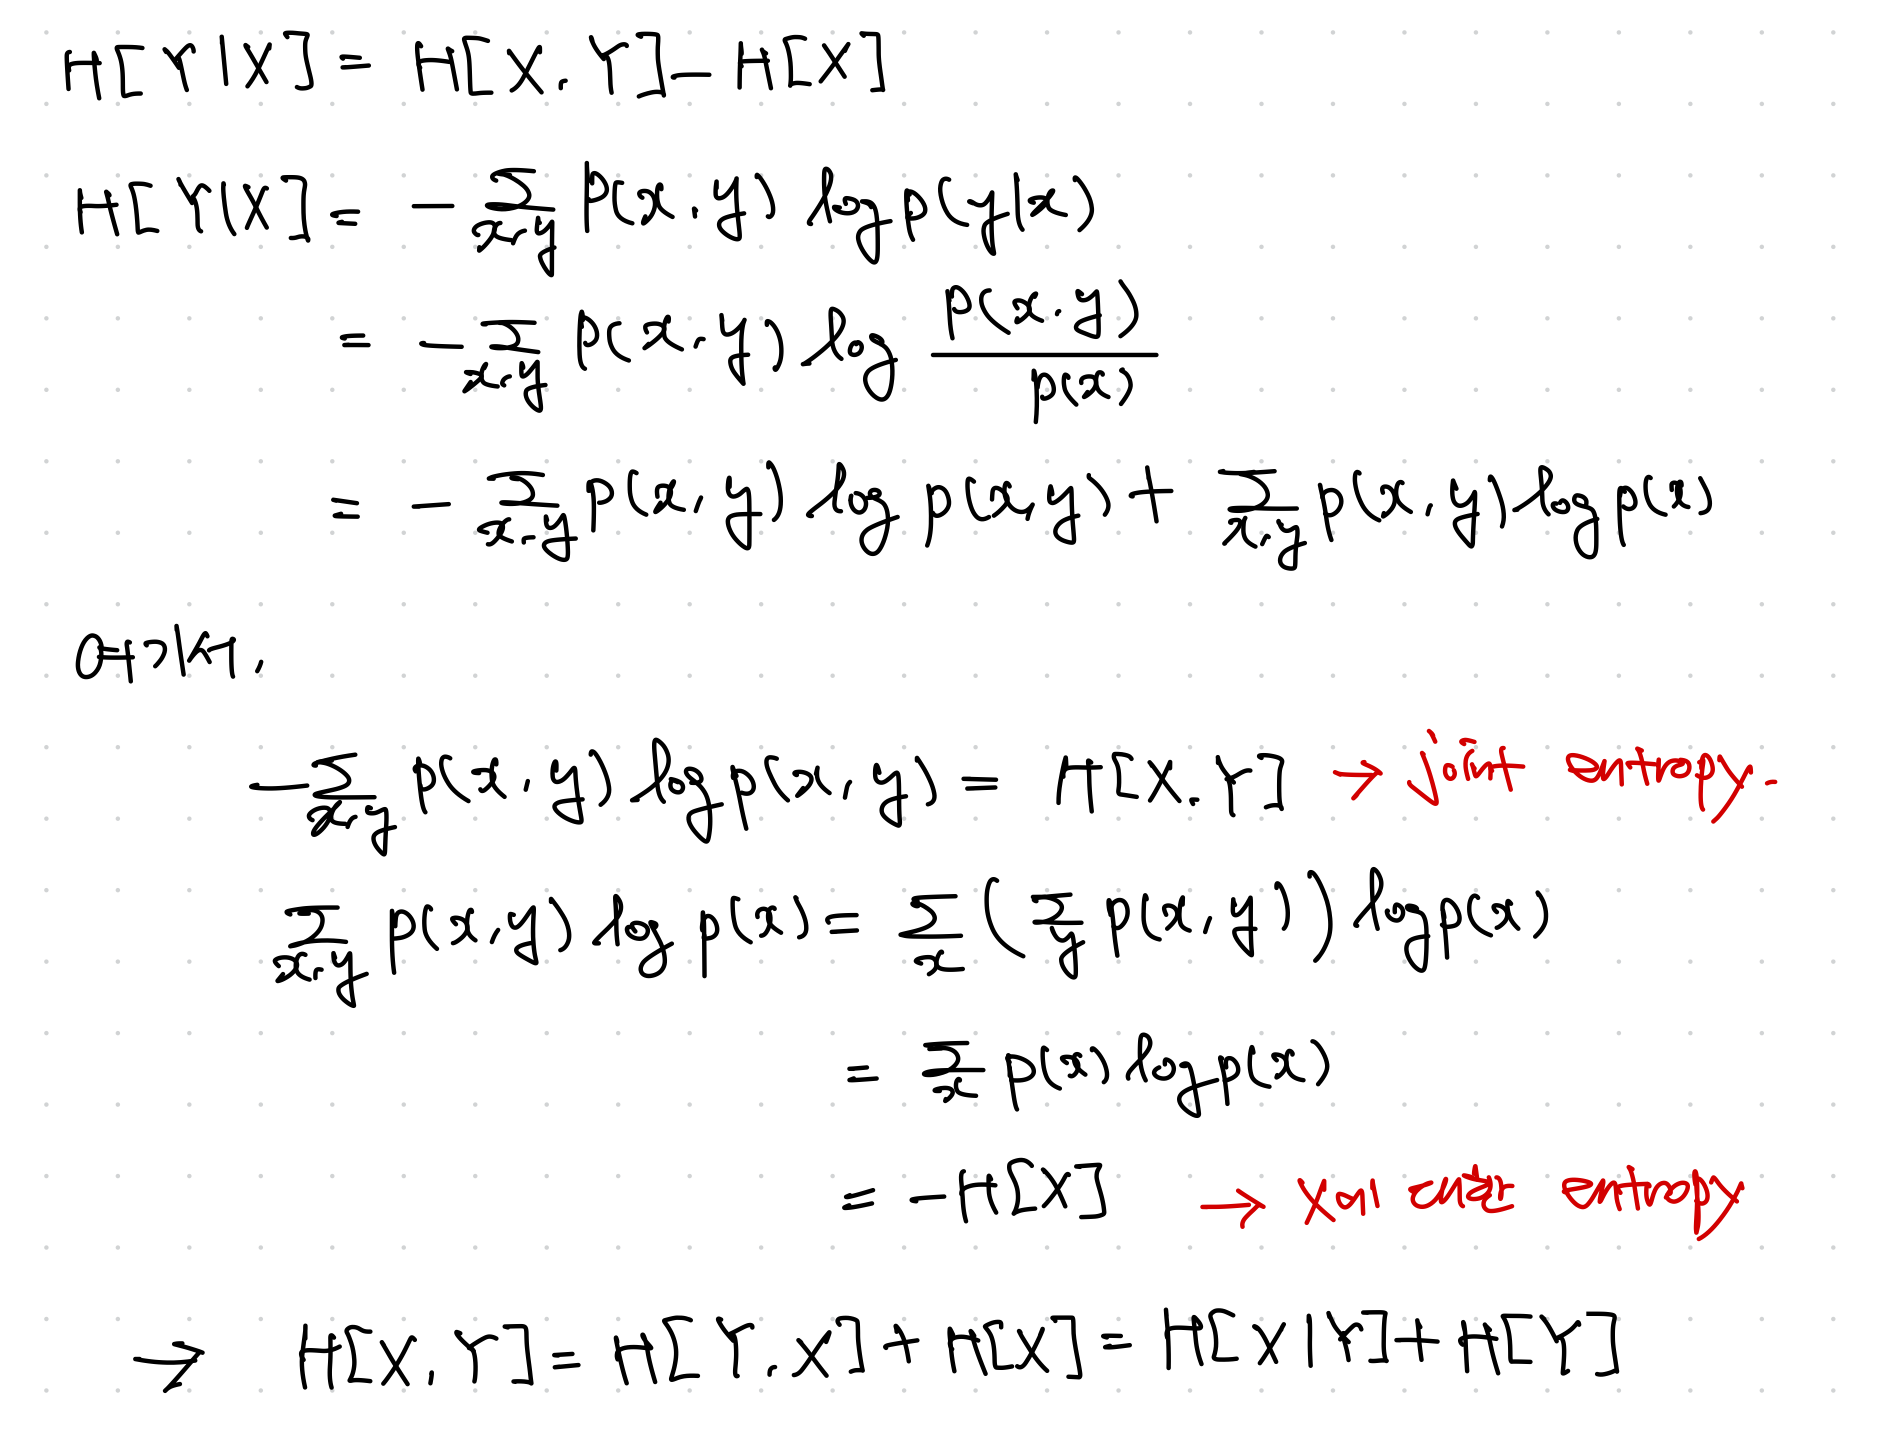 H[Y|X] = H[X, Y] - H[X]
H[Y|X] = - Σ_{x,y} p(x,y) log p(y|x)
= - Σ_{x,y} p(x,y) log p(x,y)/p(x)
= - Σ_{x,y} p(x,y) log p(x,y) + Σ_{x,y} p(x,y) log p(x)
여기서,
- Σ_{x,y} p(x,y) log p(x,y) = H[X,Y] → joint entropy.
Σ_{x,y} p(x,y) log p(x) = Σ_x (Σ_y p(x,y)) log p(x)
= Σ_x p(x) log p(x)
= -H[X] → X에 entropy
→ H[X,Y] = H[Y,X] + H[X] = H[X|Y] + H[Y]